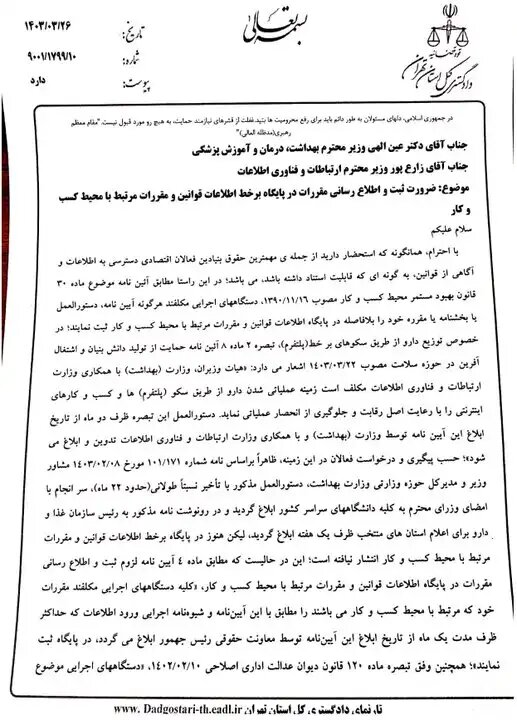 بسمه تعالی
قوه قضاییه
دادگستری کل استان تهران
تاریخ: ۱۴۰۳/۰۳/۲۶
شماره: ۹۰۰۱/۱۷۹۹/۱۰
پیوست: دارد
در جمهوری اسلامی، دلهای مسئولان به طور دائم باید برای رفع محرومیت ها بتپد.غفلت از قشرهای نیازمند حمایت، به هیچ رو مورد قبول نیست."مقام معظم
رهبری(مدظله العالی)"
جناب آقای دکتر عین الهی وزیر محترم بهداشت، درمان و آموزش پزشکی
جناب آقای زارع پور وزیر محترم ارتباطات و فناوری اطلاعات
موضوع: ضرورت ثبت و اطلاع رسانی مقررات در پایگاه برخط اطلاعات قوانین و مقررات مرتبط با محیط کسب
و کار
سلام علیکم
با احترام، همانگونه که استحضار دارید از جمله ی مهمترین حقوق بنیادین فعالان اقتصادی دسترسی به اطلاعات و
آگاهی از قوانین، به گونه ای که قابلیت استناد داشته باشد، می باشد؛ در این راستا مطابق آئین نامه موضوع ماده ۳۰
قانون بهبود مستمر محیط کسب و کار مصوب ۱۳۹۰/۱۱/۱۶، دستگاههای اجرایی مکلفند هرگونه آیین نامه، دستورالعمل
یا بخشنامه یا مقرره خود را بلافاصله در پایگاه اطلاعات قوانین و مقررات مرتبط با محیط کسب و کار ثبت نمایند؛ در
خصوص توزیع دارو از طریق سکوهای بر خط(پلتفرم)، تبصره ۲ ماده ۸ آئین نامه حمایت از تولید دانش بنیان و اشتغال
آفرین در حوزه سلامت مصوب ۱۴۰۳/۰۳/۲۲ اشعار می دارد: «هیات وزیران، وزارت (بهداشت) با همکاری وزارت
ارتباطات و فناوری اطلاعات مکلف است زمینه عملیاتی شدن دارو از طریق سکو (پلتفرم) ها و کسب و کارهای
اینترنتی را با رعایت اصل رقابت و جلوگیری از انحصار عملیاتی نماید. دستورالعمل این تبصره ظرف دو ماه از تاریخ
ابلاغ این آیین نامه توسط وزارت (بهداشت) و با همکاری وزارت ارتباطات و فناوری اطلاعات تدوین و ابلاغ می
شود»؛ حسب پیگیری و درخواست فعالان در این زمینه، ظاهراً براساس نامه شماره ۱۰۱/۱۷۱ مورخ ۱۴۰۳/۰۲/۰۸ مشاور
وزیر و مدیرکل حوزه وزارتی وزارت بهداشت، دستورالعمل مذکور با تأخیر نسبتاً طولانی(حدود ۲۲ ماه)، سر انجام با
امضای وزرای محترم به کلیه دانشگاههای سراسر کشور ابلاغ گردید و در رونوشت نامه مذکور به رئیس سازمان غذا و
دارو برای اعلام استان های منتخب ظرف یک هفته ابلاغ گردید، لیکن هنوز در پایگاه برخط اطلاعات قوانین و مقررات
مرتبط با محیط کسب و کار انتشار نیافته است؛ این در حالیست که مطابق ماده ۴ آیین نامه لزوم ثبت و اطلاع رسانی
مقررات در پایگاه اطلاعات قوانین و مقررات مرتبط با محیط کسب و کار، «کلیه دستگاههای اجرایی مکلفند مقررات
خود که مرتبط با محیط کسب و کار می باشند را مطابق با این آیین‌نامه و شیوه‌نامه اجرایی ورود اطلاعات که حداکثر
ظرف مدت یک ماه از تاریخ ابلاغ این آیین‌نامه توسط معاونت حقوقی رئیس جهمور ابلاغ می گردد، در پایگاه ثبت
نمایند»؛ همچنین وفق تبصره ماده ۱۲۰ قانون دیوان عدالت اداری اصلاحی ۱۴۰۲/۰۲/۱۰، «دستگاههای اجرایی موضوع
تارنمای دادگستری کل استان تهران www. Dadgostari-th.eadl.ir